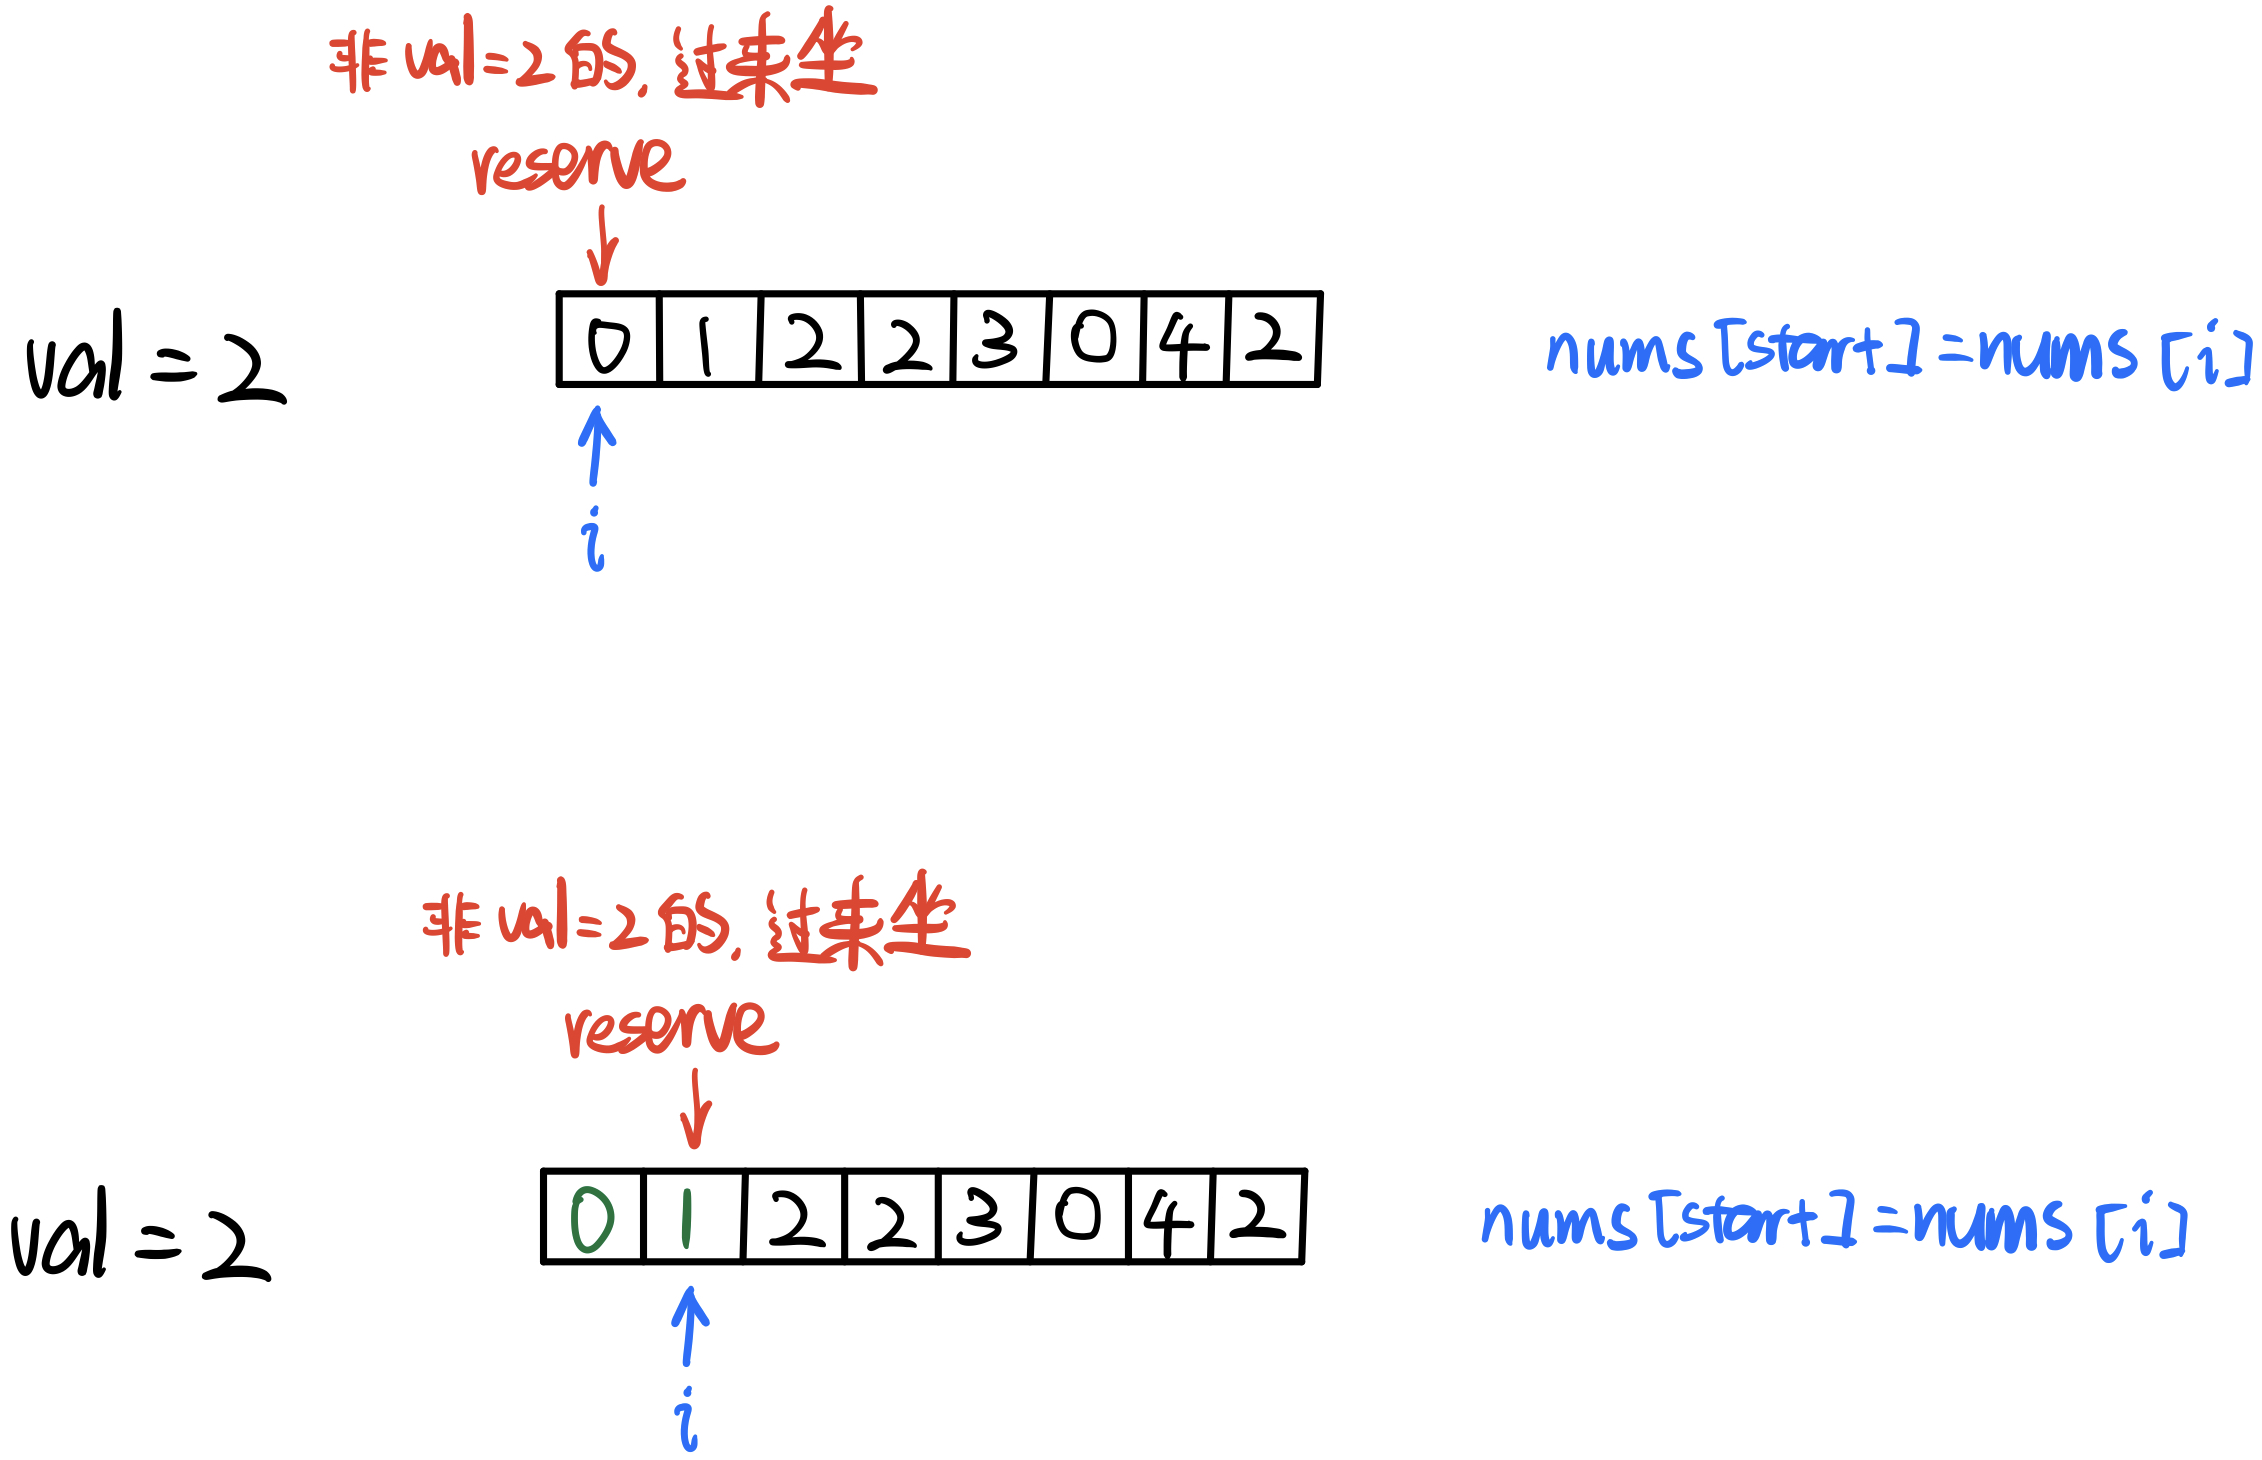 非val=2的,过来坐
reserve
val=2
0 1 2 2 3 0 4 2
nums[start]=nums[i]
i
非val=2的,过来坐
reserve
val=2
0 1 2 2 3 0 4 2
nums[start]=nums[i]
i